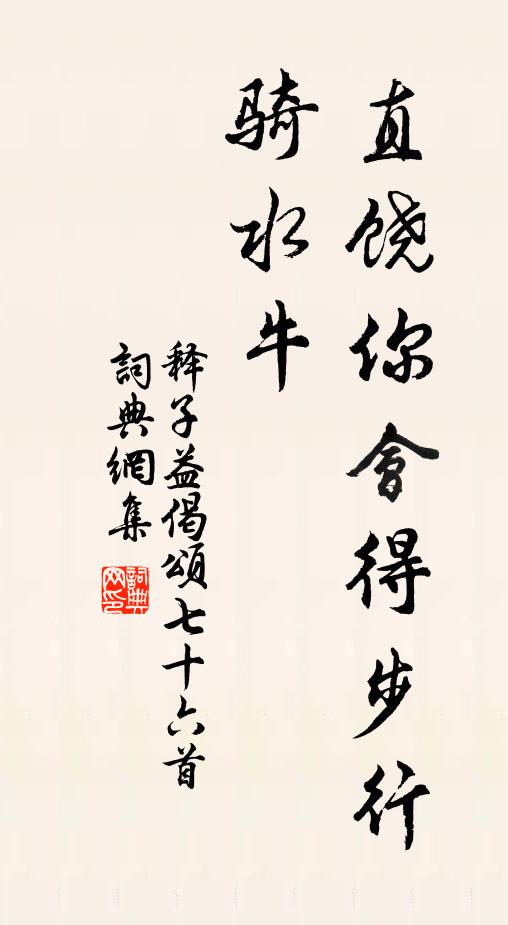 直饶你會得步行
骑水牛
释子益偈頌七十六首
詞典網集
詞典
网印